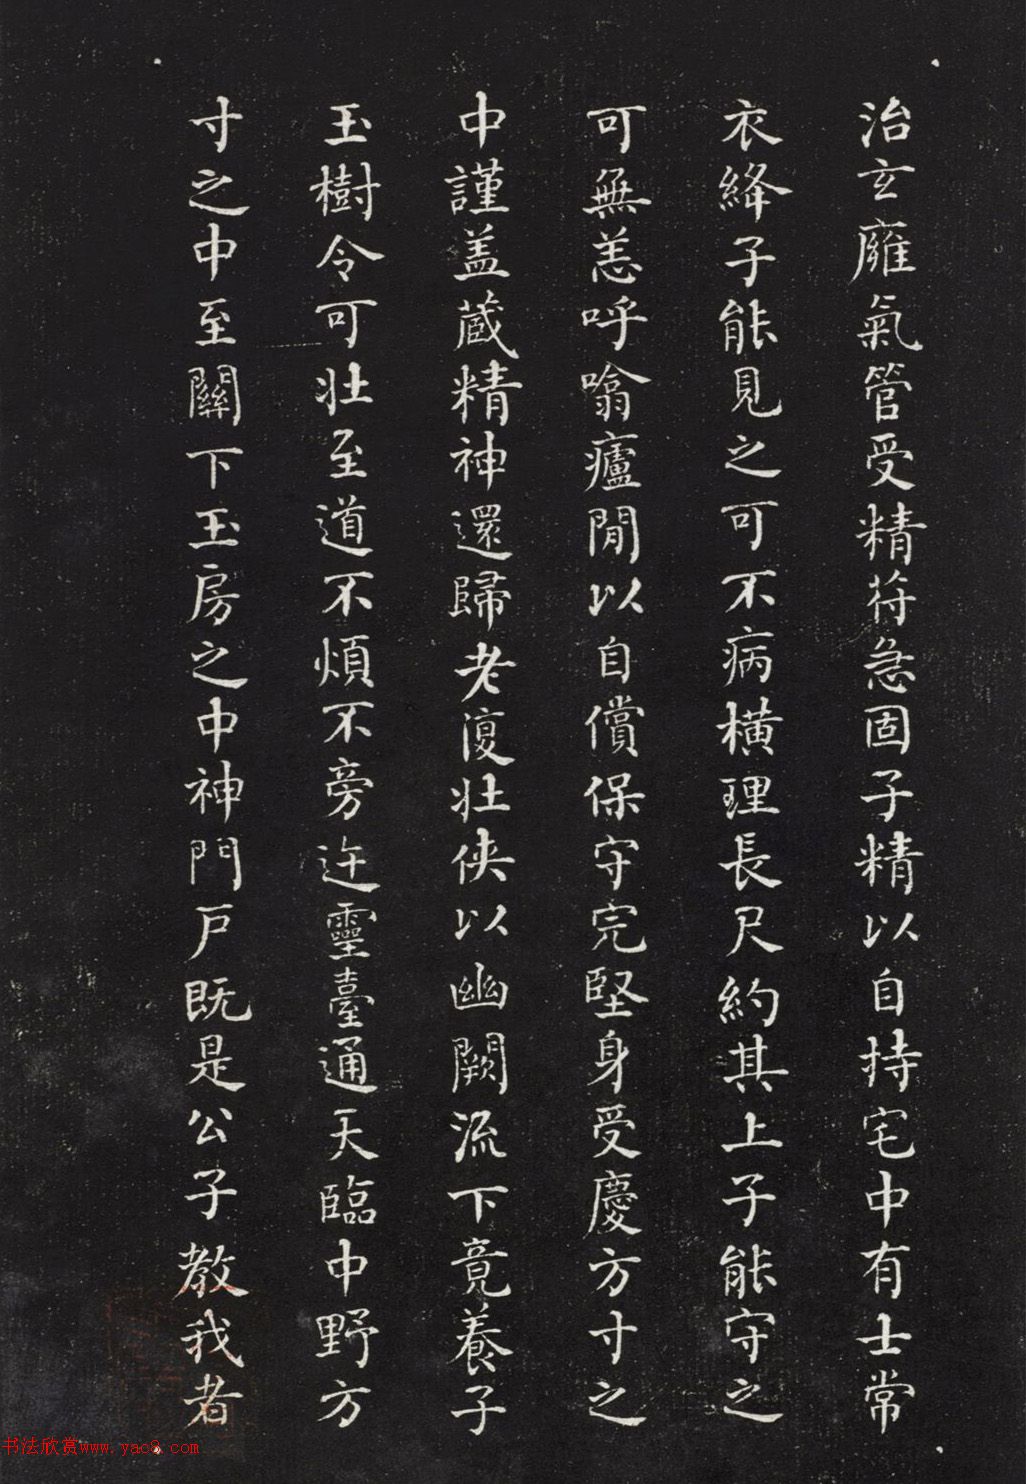 治玄廱氣管受精苻急固子精以自持宅中有士常
衣絳子能見之可不病橫理長尺約其上子能守之
可無恙呼噏廬閒以自償保守完堅身受慶方寸之
中謹盖藏精神還歸老復壯俠以幽闕流下竟養子
玉樹令可壯至道不煩不旁迕靈臺通天臨中野方
寸之中至關下玉房之中神門戶既是公子教我者
书法欣赏www.yac8.com